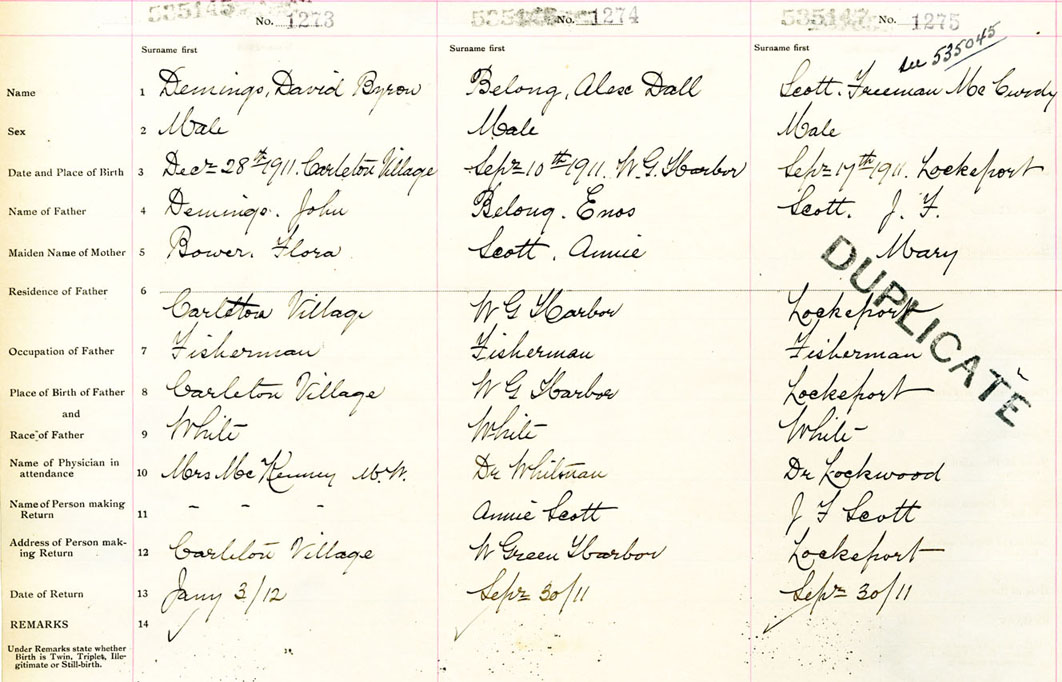 535145 No. 1273 No. 1274 No. 1275
see 535045
Surname first Surname first Surname first
Name 1 Demings, David Byron Belong, Alex Dall Scott. Freeman Mc Curdy
Sex 2 Male Male Male
Date and Place of Birth 3 Decr 28th 1911. Carleton Village Sepr 10th 1911. W. G. Harbor Sepr 17th 1911. Lockeport
Name of Father 4 Demings. John Belong. Enos Scott. J. F.
Maiden Name of Mother 5 Bower. Flora Scott. Annie Mary
Residence of Father 6
Carleton Village W G Harbor Lockeport
DUPLICATE
Occupation of Father 7 Fisherman Fisherman Fisherman
Place of Birth of Father 8 Carleton Village W G Harbor Lockeport
and
Race of Father 9 White White White
Name of Physician in
attendance 10 Mrs McKenney M.W. Dr Whitman Dr Lockwood
Name of Person making
Return 11 - - - Annie Scott J F Scott
Address of Person mak-
ing Return 12 Carleton Village W Green Harbor Lockeport
Date of Return 13 Jany 3/12 Sepr 30/11 Sepr 30/11
REMARKS 14
Under Remarks state whether
Birth is Twin, Triplet, Ille-
gitimate or Still-birth.